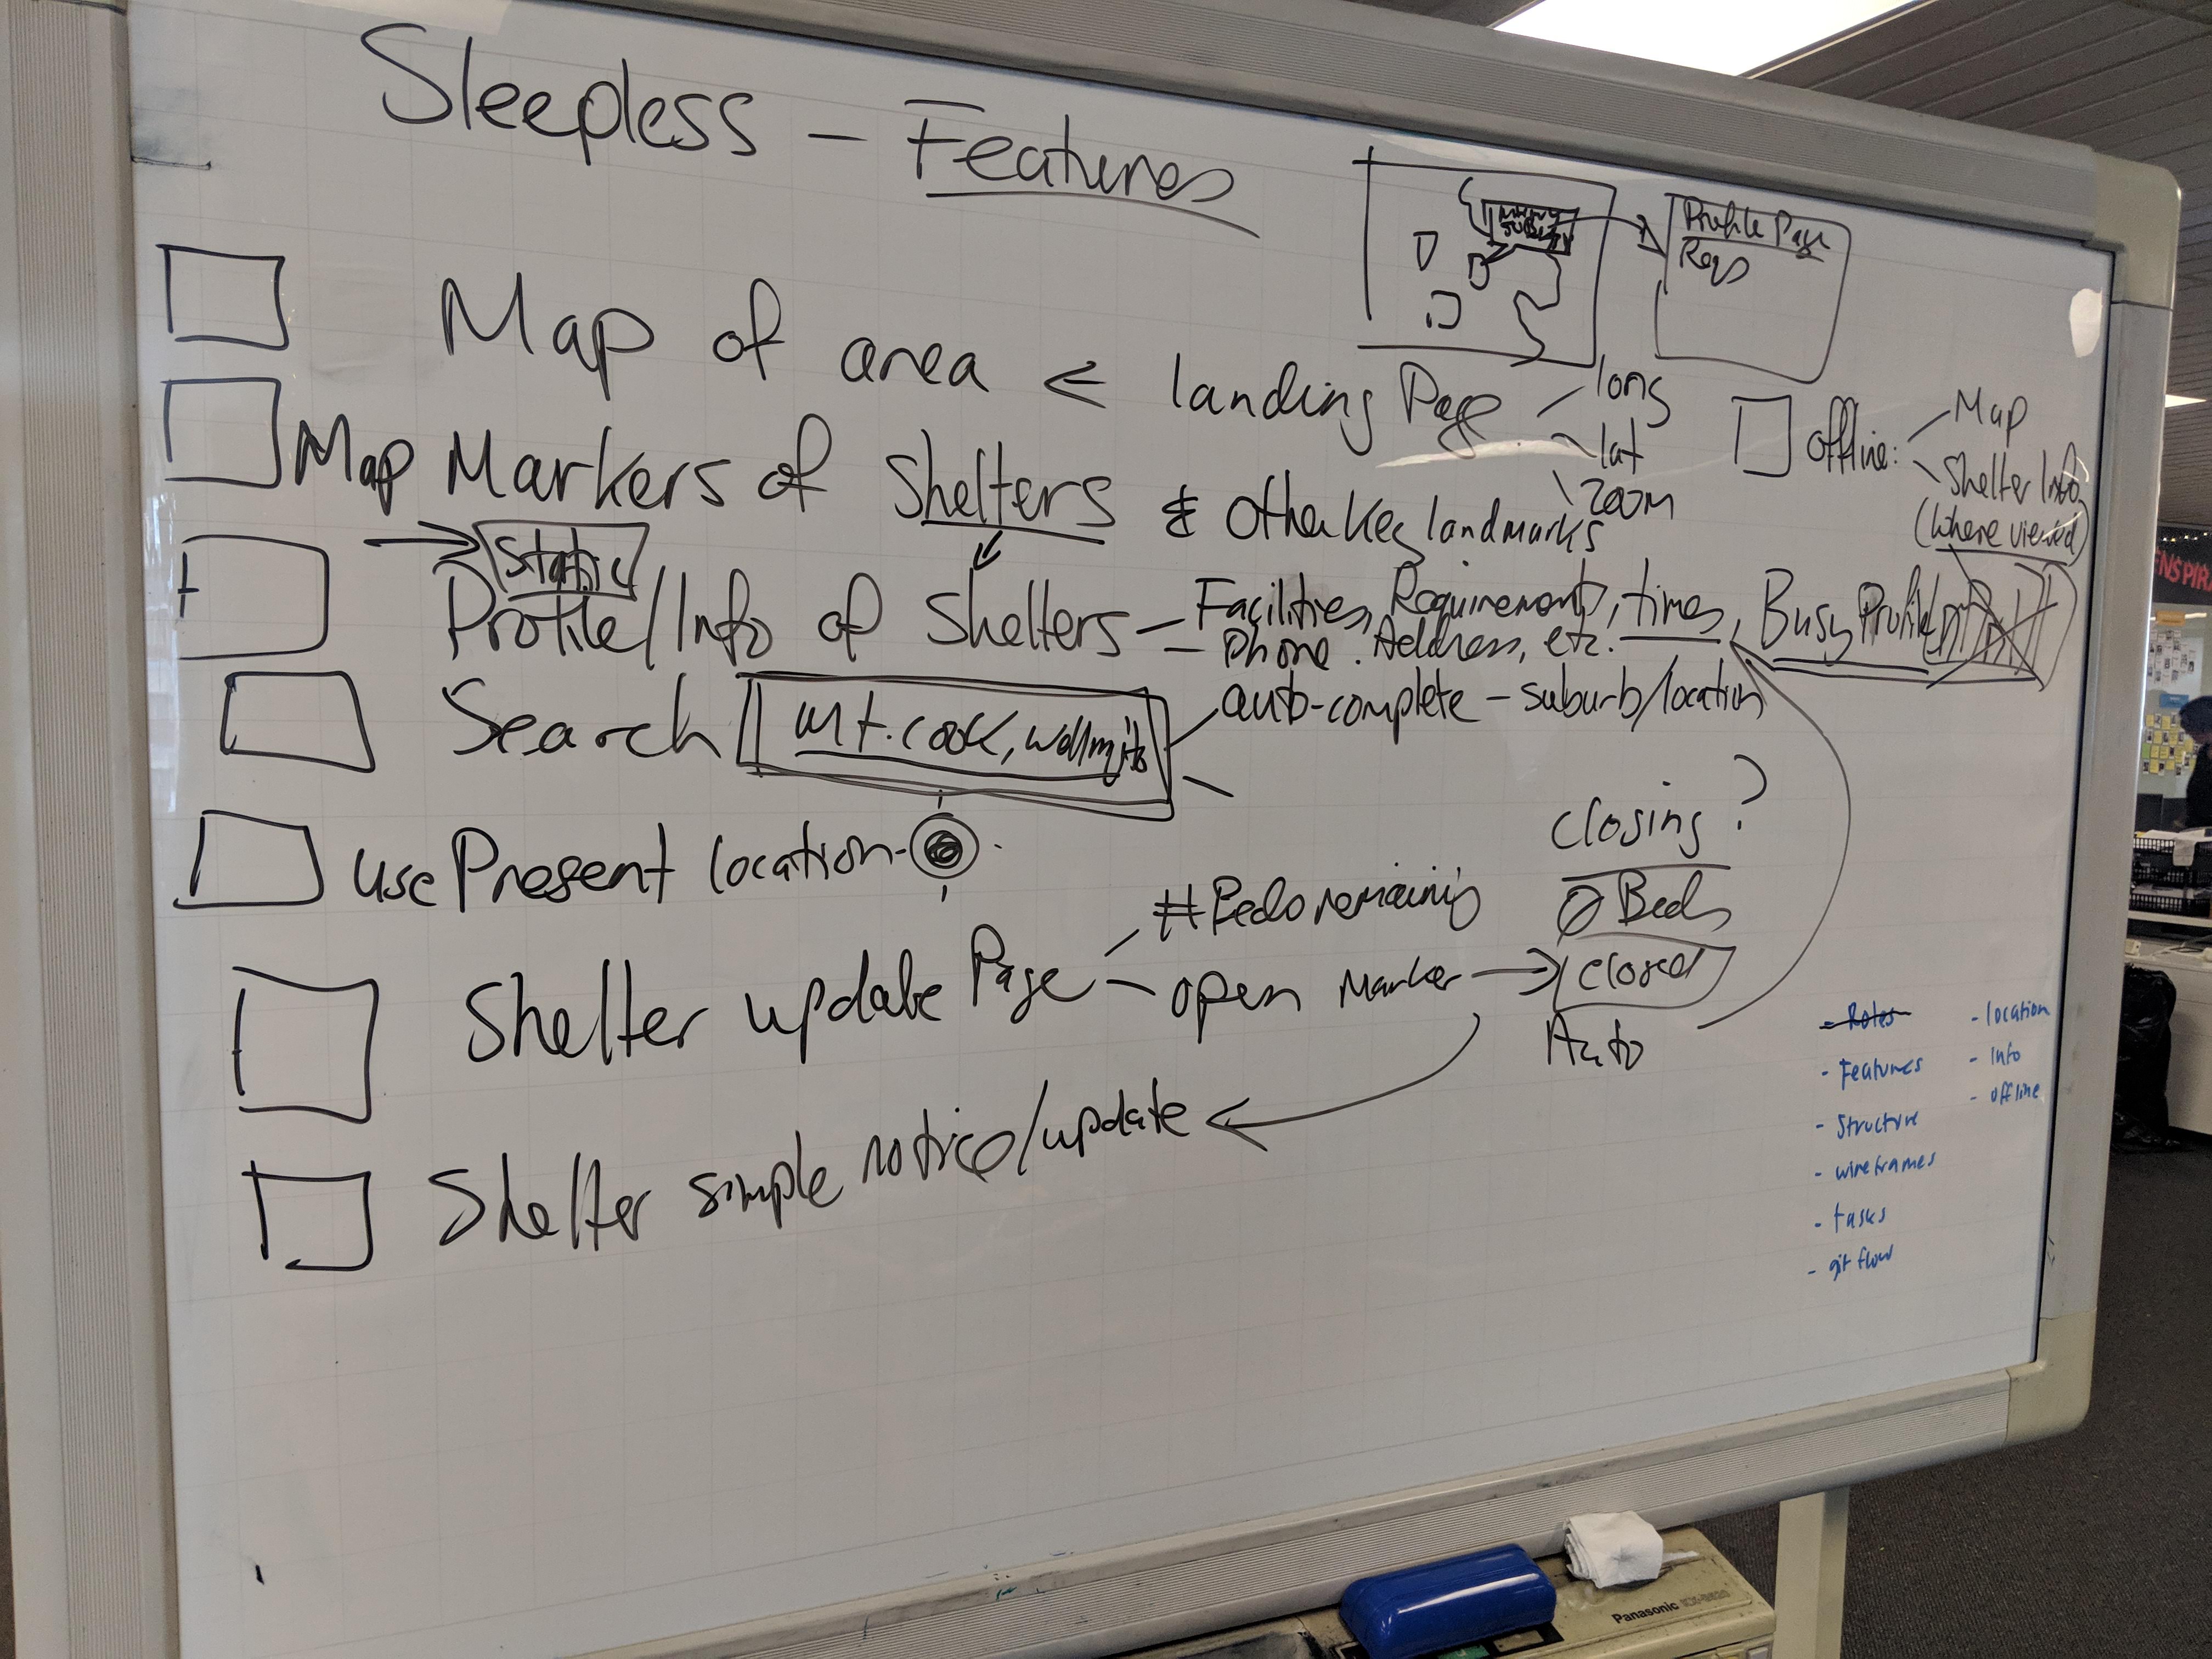 Sleepless - Features
Profile Page
Reqs
Map of area ← landing Page
long
lat
zoom
offline:
Map
Shelter Info
(where viewed)
Map Markers of Shelters & Other Key landmarks
Static
Profile/Info of Shelters - Facilities, Requirements, times, Busy Profile
- Phone. Address, etc.
Search
Mt. Cook,
auto-complete - suburb/location
use Present location
closing?
Shelter update Page
#Beds remaining
0 Beds
open Marker → closed
Auto
Shelter simple notice/update
- Roles
- Features
- Structure
- wireframes
- tasks
- git flow
- location
- Info
- offline
Panasonic